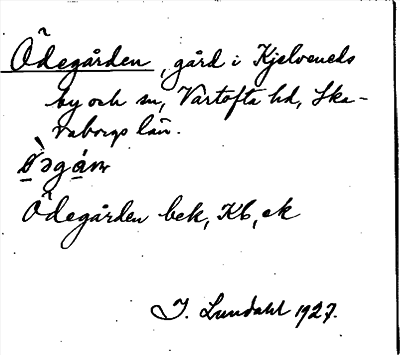 Ödegården, gård i Kjelveneds
by och sn, Vartofta hd, Ska-
raborgs län.
Ödegården bek, Kb, ek
I. Lundahl 1927.